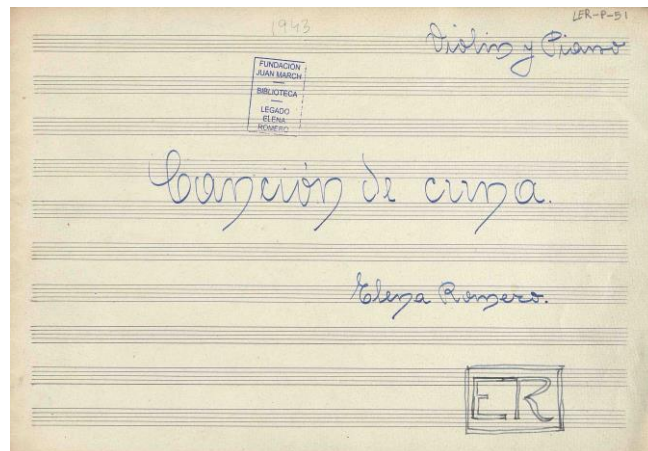 1943
LER-P-51
Violin y Piano
FUNDACIÓN
JUAN MARCH
BIBLIOTECA
LEGADO
ELENA
ROMERO
Canción de cuna.
Elena Romero.
ER